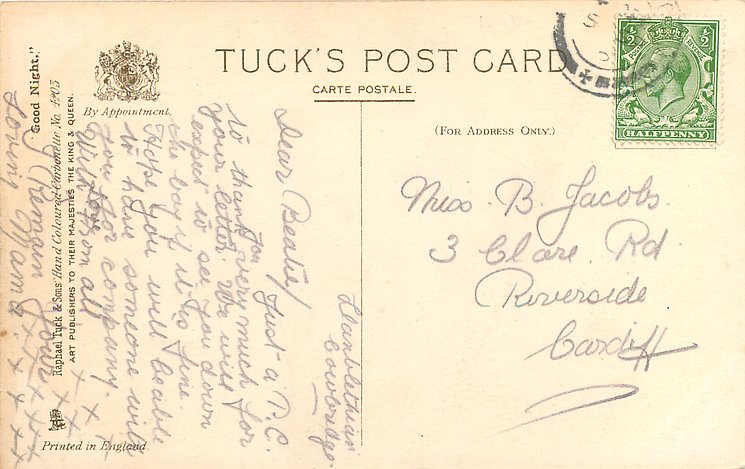 TUCK'S POST CARD
CARTE POSTALE.
(FOR ADDRESS ONLY.)
By Appointment.
"Good Night."
Raphael Tuck & Sons' Hand Coloured Carbonette No. 4203
ART PUBLISHERS TO THEIR MAJESTIES THE KING & QUEEN.
Printed in England.
½ ½
HALFPENNY
Miss B. Jacobs
3 Clare Rd
Riverside
Cardiff
Llanblethian
Cowbridge
Dear Beatie/
Just a P.C.
to thank you very much for
your letter. We will
expect to see you down
the bay if its fine
Hope you will be able
to have someone with
you for company.
With from all
I Remain Your
Loving Mama
x x x x x x x